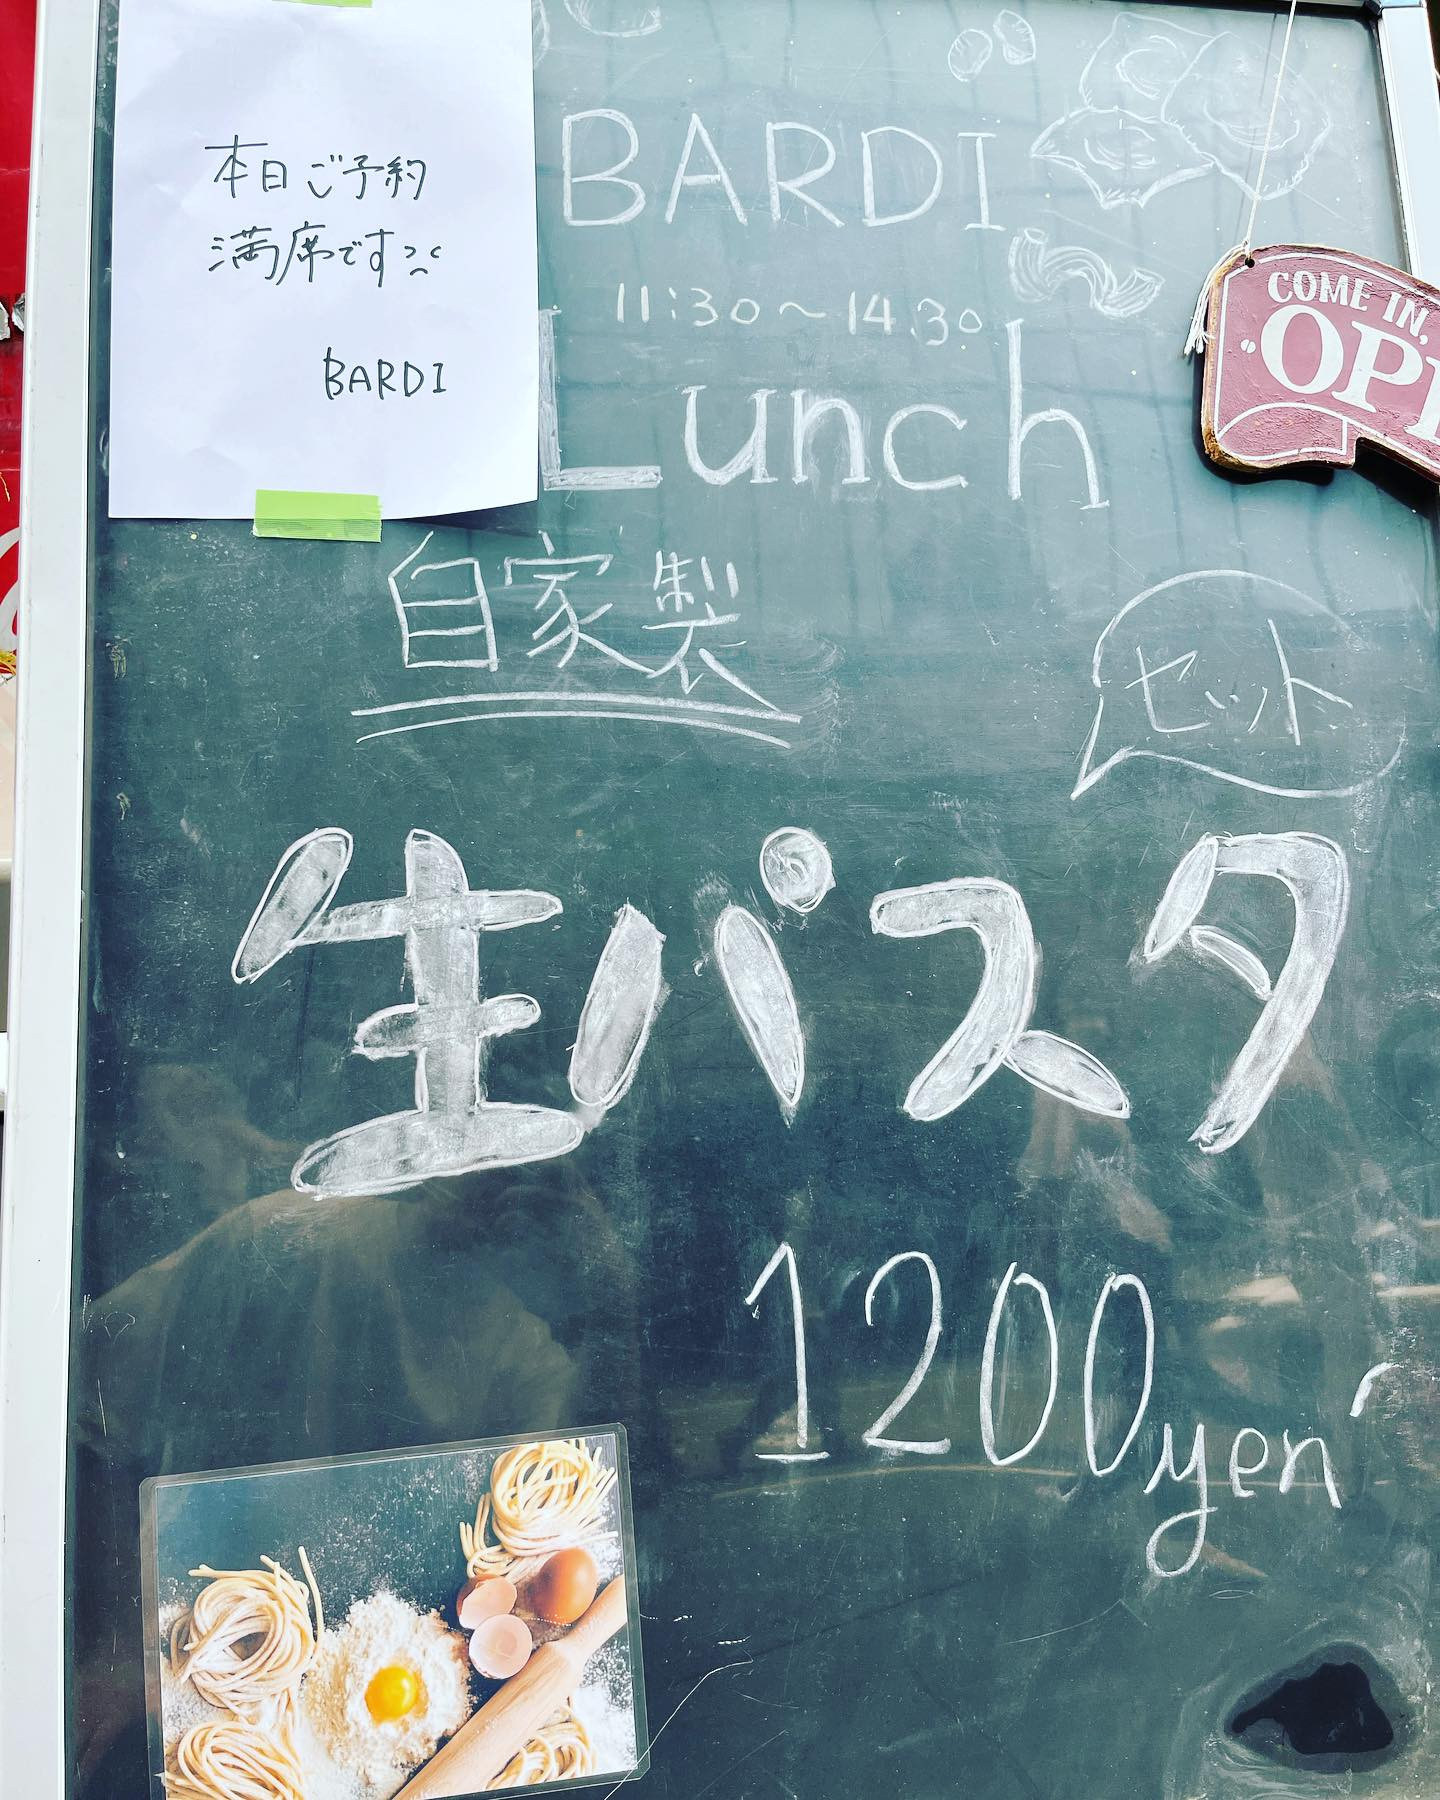 本日ご予約
満席です
BARDI
BARDI
11:30～14:30
Lunch
COME IN,
自家製
セット
生パスタ
1200yen～